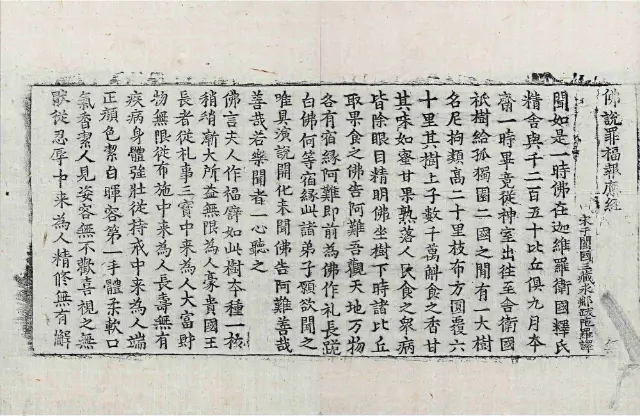 佛說罪福報應經
宋于闐國三藏求那跋陀羅譯
聞如是一時佛在迦維羅衛國釋氏
精舍與千二百五十比丘俱九月本
齋一時畢竟從神室出往至舍衛國
祇樹給孤獨園二國之間有一大樹
名尼拘類高二十里枝布方圓覆六
十里其樹上子數千萬斛食之香甘
其味如蜜甘果熟落人民食之衆病
皆除眼目精明佛坐樹下時諸比丘
取果食之佛告阿難吾觀天地万物
各有宿緣阿難即前為佛作礼長跪
白佛何等宿緣此諸弟子願欲聞之
唯具演說開化未聞佛告阿難善哉
善哉若樂聞者一心聽之
佛言夫人作福譬如此樹本種一核
稍稍漸大所益無限為人豪貴國王
長者從札事三寶中来為人大富財
物無限從布施中来為人長壽無有
疾病身體强壯從持戒中来為人端
正顏色潔白暉容第一手體柔軟口
氣香潔人見姿容無不歡喜視之無
猒從忍辱中来為人精修無有懈